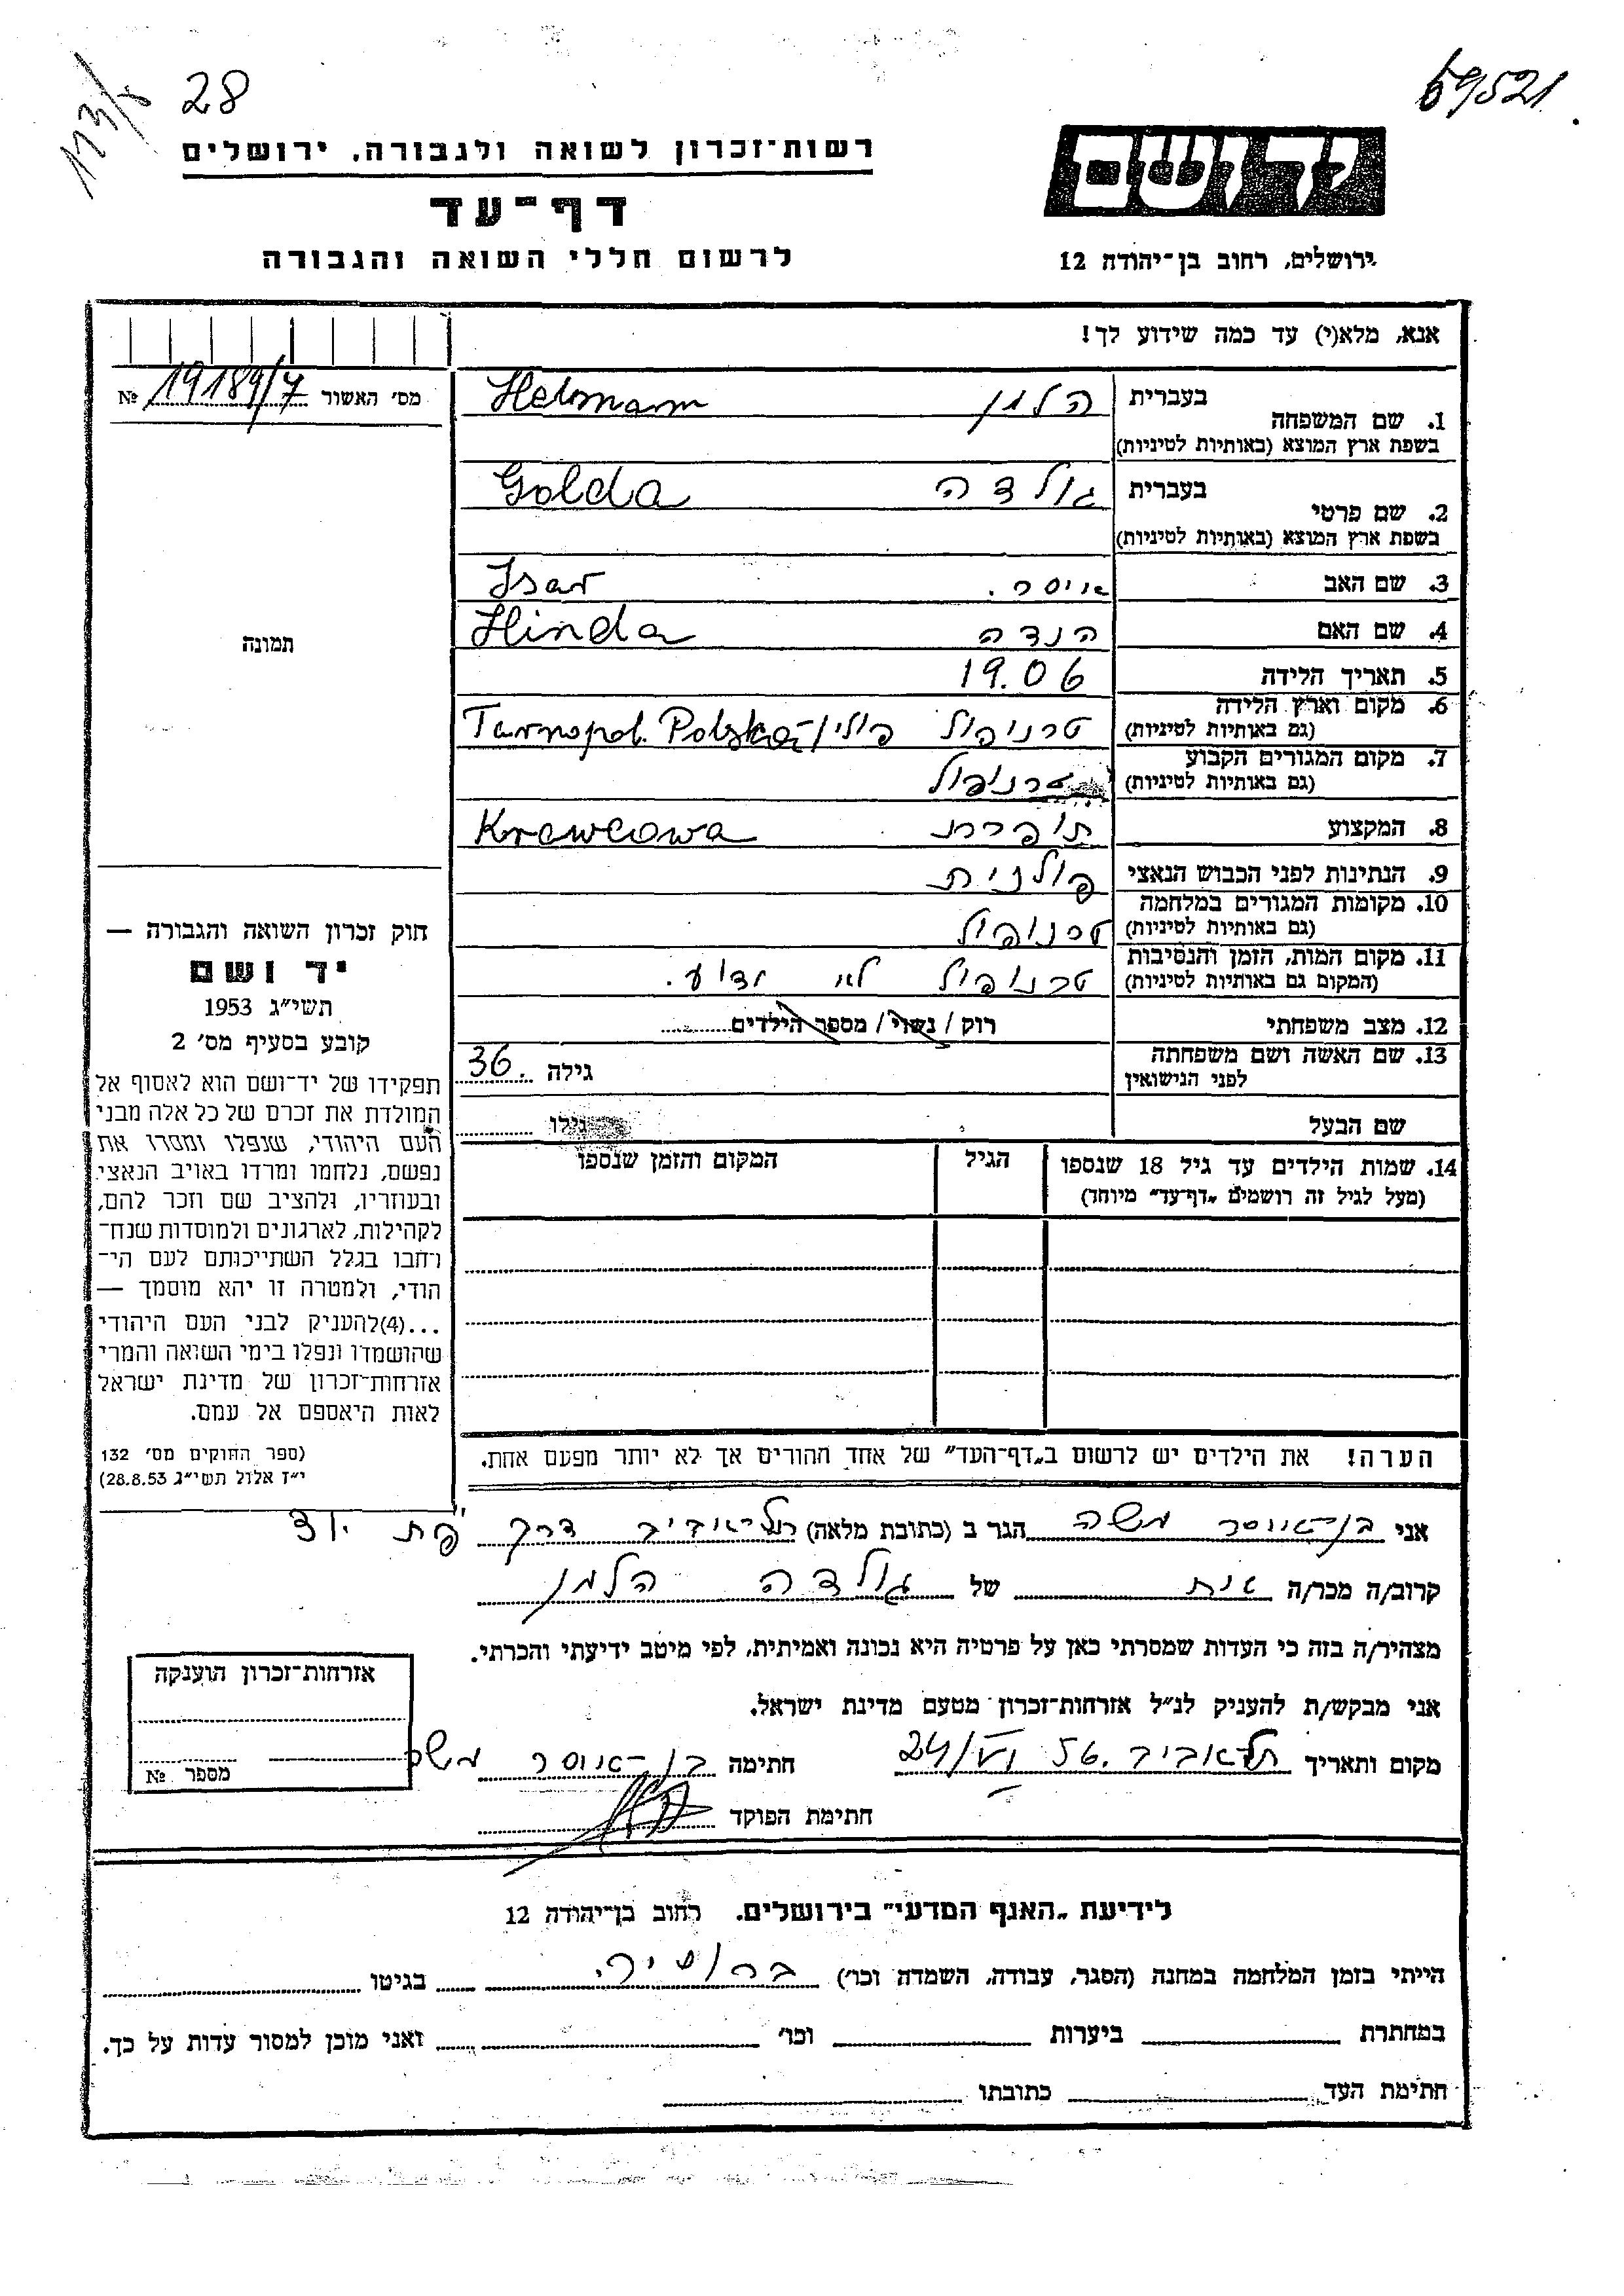 113/8
28
69521
רשות־זכרון לשואה ולגבורה, ירושלים
יד ושם
דף־עד
לרשום חללי השואה והגבורה
ירושלים, רחוב בן־יהודה 12
אנא, מלא(י) עד כמה שידוע לך!
מס׳ האשור № 19189/7
בעברית הלמן Helmann
1. שם המשפחה
בשפת ארץ המוצא (באותיות לטיניות)
בעברית גולדה Golda
2. שם פרטי
בשפת ארץ המוצא (באותיות לטיניות)
3. שם האב איסר. Isar
4. שם האם הנדה Hinda
5. תאריך הלידה 19.06
6. מקום וארץ הלידה
(גם באותיות לטיניות) טרנופול פולין Tarnopol. Polska
7. מקום המגורים הקבוע
(גם באותיות לטיניות) טרנופול
8. המקצוע תופרת Krawcowa
9. הנתינות לפני הכבוש הנאצי פולנית
10. מקומות המגורים במלחמה
(גם באותיות לטיניות) טרנופול
11. מקום המות, הזמן והנסיבות
(המקום גם באותיות לטיניות) טרנופול לא ידוע.
12. מצב משפחתי רוק / נשוי / מספר הילדים
13. שם האשה ושם משפחתה
לפני הנישואין גילה 36.
שם הבעל גילו
14. שמות הילדים עד גיל 18 שנספו הגיל המקום והזמן שנספו
(מעל לגיל זה רושמים „דף־עד” מיוחד)
הערה! את הילדים יש לרשום ב„דף־העד” של אחד ההורים אך לא יותר מפעם אחת.
תמונה
חוק זכרון השואה והגבורה —
יד ושם
תשי״ג 1953
קובע בסעיף מס׳ 2
תפקידו של יד־ושם הוא לאסוף אל
המולדת את זכרם של כל אלה מבני
העם היהודי, שנפלו ומסרו את
נפשם, נלחמו ומרדו באויב הנאצי
ובעוזריו, ולהציב שם וזכר להם,
לקהילות, לארגונים ולמוסדות שנח־
רחבו בגלל השתייכותם לעם הי־
הודי, ולמטרה זו יהא מוסמך —
...(4)להעניק לבני העם היהודי
שהושמדו ונפלו בימי השואה והמרי
אזרחות־זכרון של מדינת ישראל
לאות היאספם אל עמם.
(ספר החוקים מס׳ 132
י״ז אלול תשי״ג 28.8.53)
אני בן־איסר משה הגר ב (כתובת מלאה) תל־אביב דרך פת
קרוב/ה מכר/ה אחת של גולדה הלמן
מצהיר/ה בזה כי העדות שמסרתי כאן על פרטיה היא נכונה ואמיתית, לפי מיטב ידיעתי והכרתי.
אני מבקש/ת להעניק לנ״ל אזרחות־זכרון מטעם מדינת ישראל.
מקום ותאריך תל־אביב 24/VI 56. חתימה בן־איסר משה
חתימת הפוקד
אזרחות־זכרון הוענקה
מספר №
לידיעת „האגף המדעי” בירושלים. רחוב בן־יהודה 12
הייתי בזמן המלחמה במחנה (הסגר, עבודה, השמדה וכו׳) ברוסיה. בגיטו
במחתרת ביערות וכו׳ ואני מוכן למסור עדות על כך.
חתימת העד כתובתו